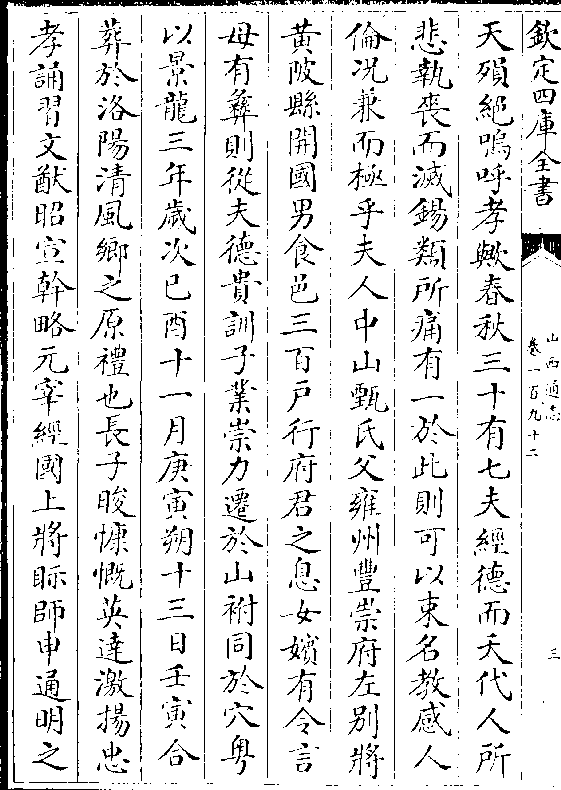 欽定四庫全書
山西通志
卷一百九十二
三
天殞絕嗚呼孝歟春秋三十有七夫經德而夭代人所
悲執喪而滅錫類所痛有一於此則可以束名教感人
倫况兼而極乎夫人中山甄氏父雍州豐崇府左别將
黄陂縣開國男食邑三百户行府君之息女嬪有令言
母有彝則從夫德貴訓子業崇力遷於山祔同於穴粤
以景龍三年歲次已酉十一月庚寅朔十三日壬寅合
葬於洛陽清風鄉之原禮也長子晙慷慨英達激揚忠
孝誦習文猷昭宣幹略元宰經國上將眎師申通明之